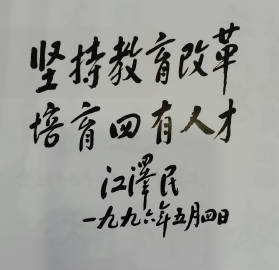 坚持教育改革
培育四有人才
江泽民
一九九六年五月四日